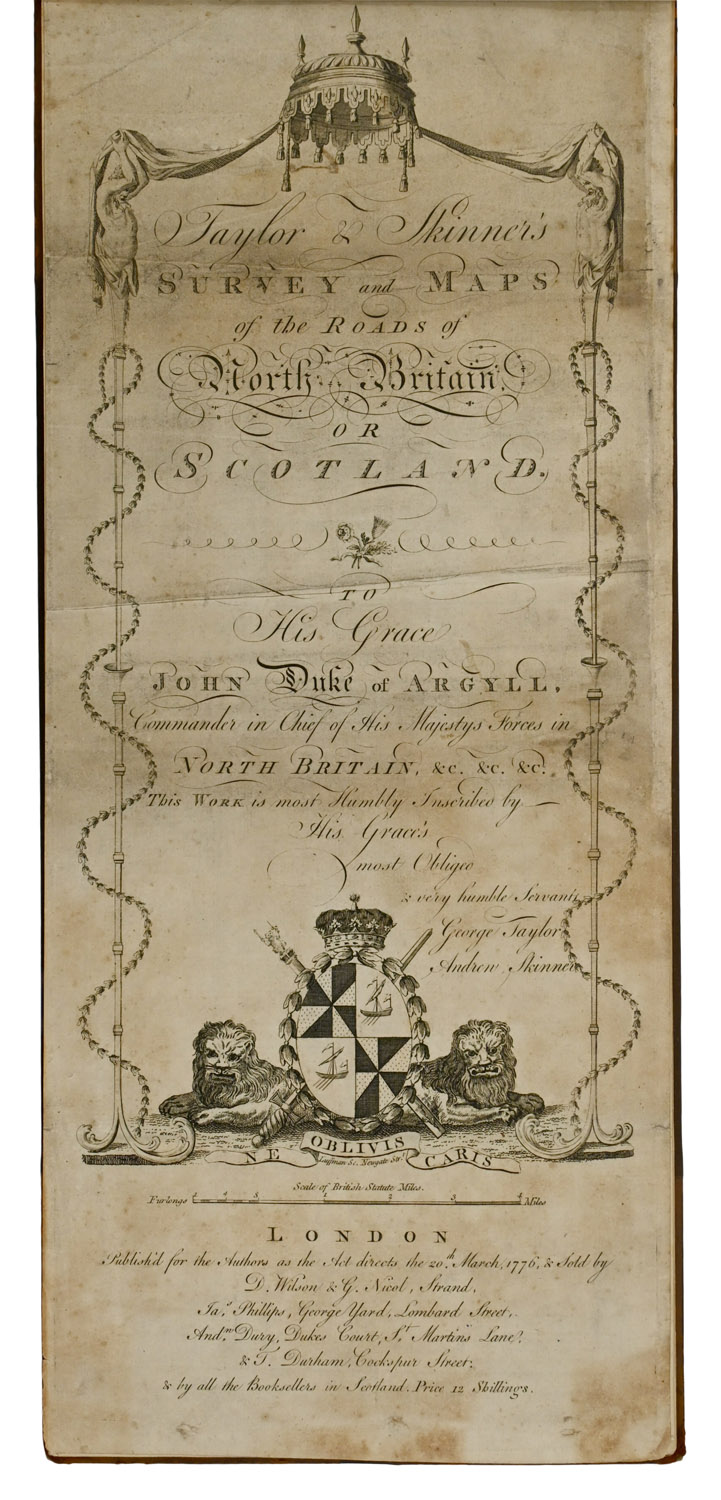 Taylor & Skinner's
SURVEY and MAPS
of the ROADS of
North Britain,
OR
SCOTLAND.
TO
His Grace
JOHN Duke of ARGYLL,
Commander in Chief of His Majestys Forces in
NORTH BRITAIN, &c. &c. &c.
This WORK is most Humbly Inscribed by
His Grace's
most Obliged
& very humble Servants
George Taylor
Andrew Skinner
NE OBLIVISCARIS
Luffman Sc. Newgate Str.
Scale of British Statute Miles.
Furlongs 8 4 8 1 2 3 4 Miles
LONDON
Publish'd for the Authors as the Act directs the 20.th March, 1776, & Sold by
D. Wilson & G. Nicol, Strand,
Ja.s Phillips, George Yard, Lombard Street,
And.w Dury, Dukes Court, S.t Martins Lane,
& T. Durham, Cockspur Street;
& by all the Booksellers in Scotland. Price 12 Shillings.